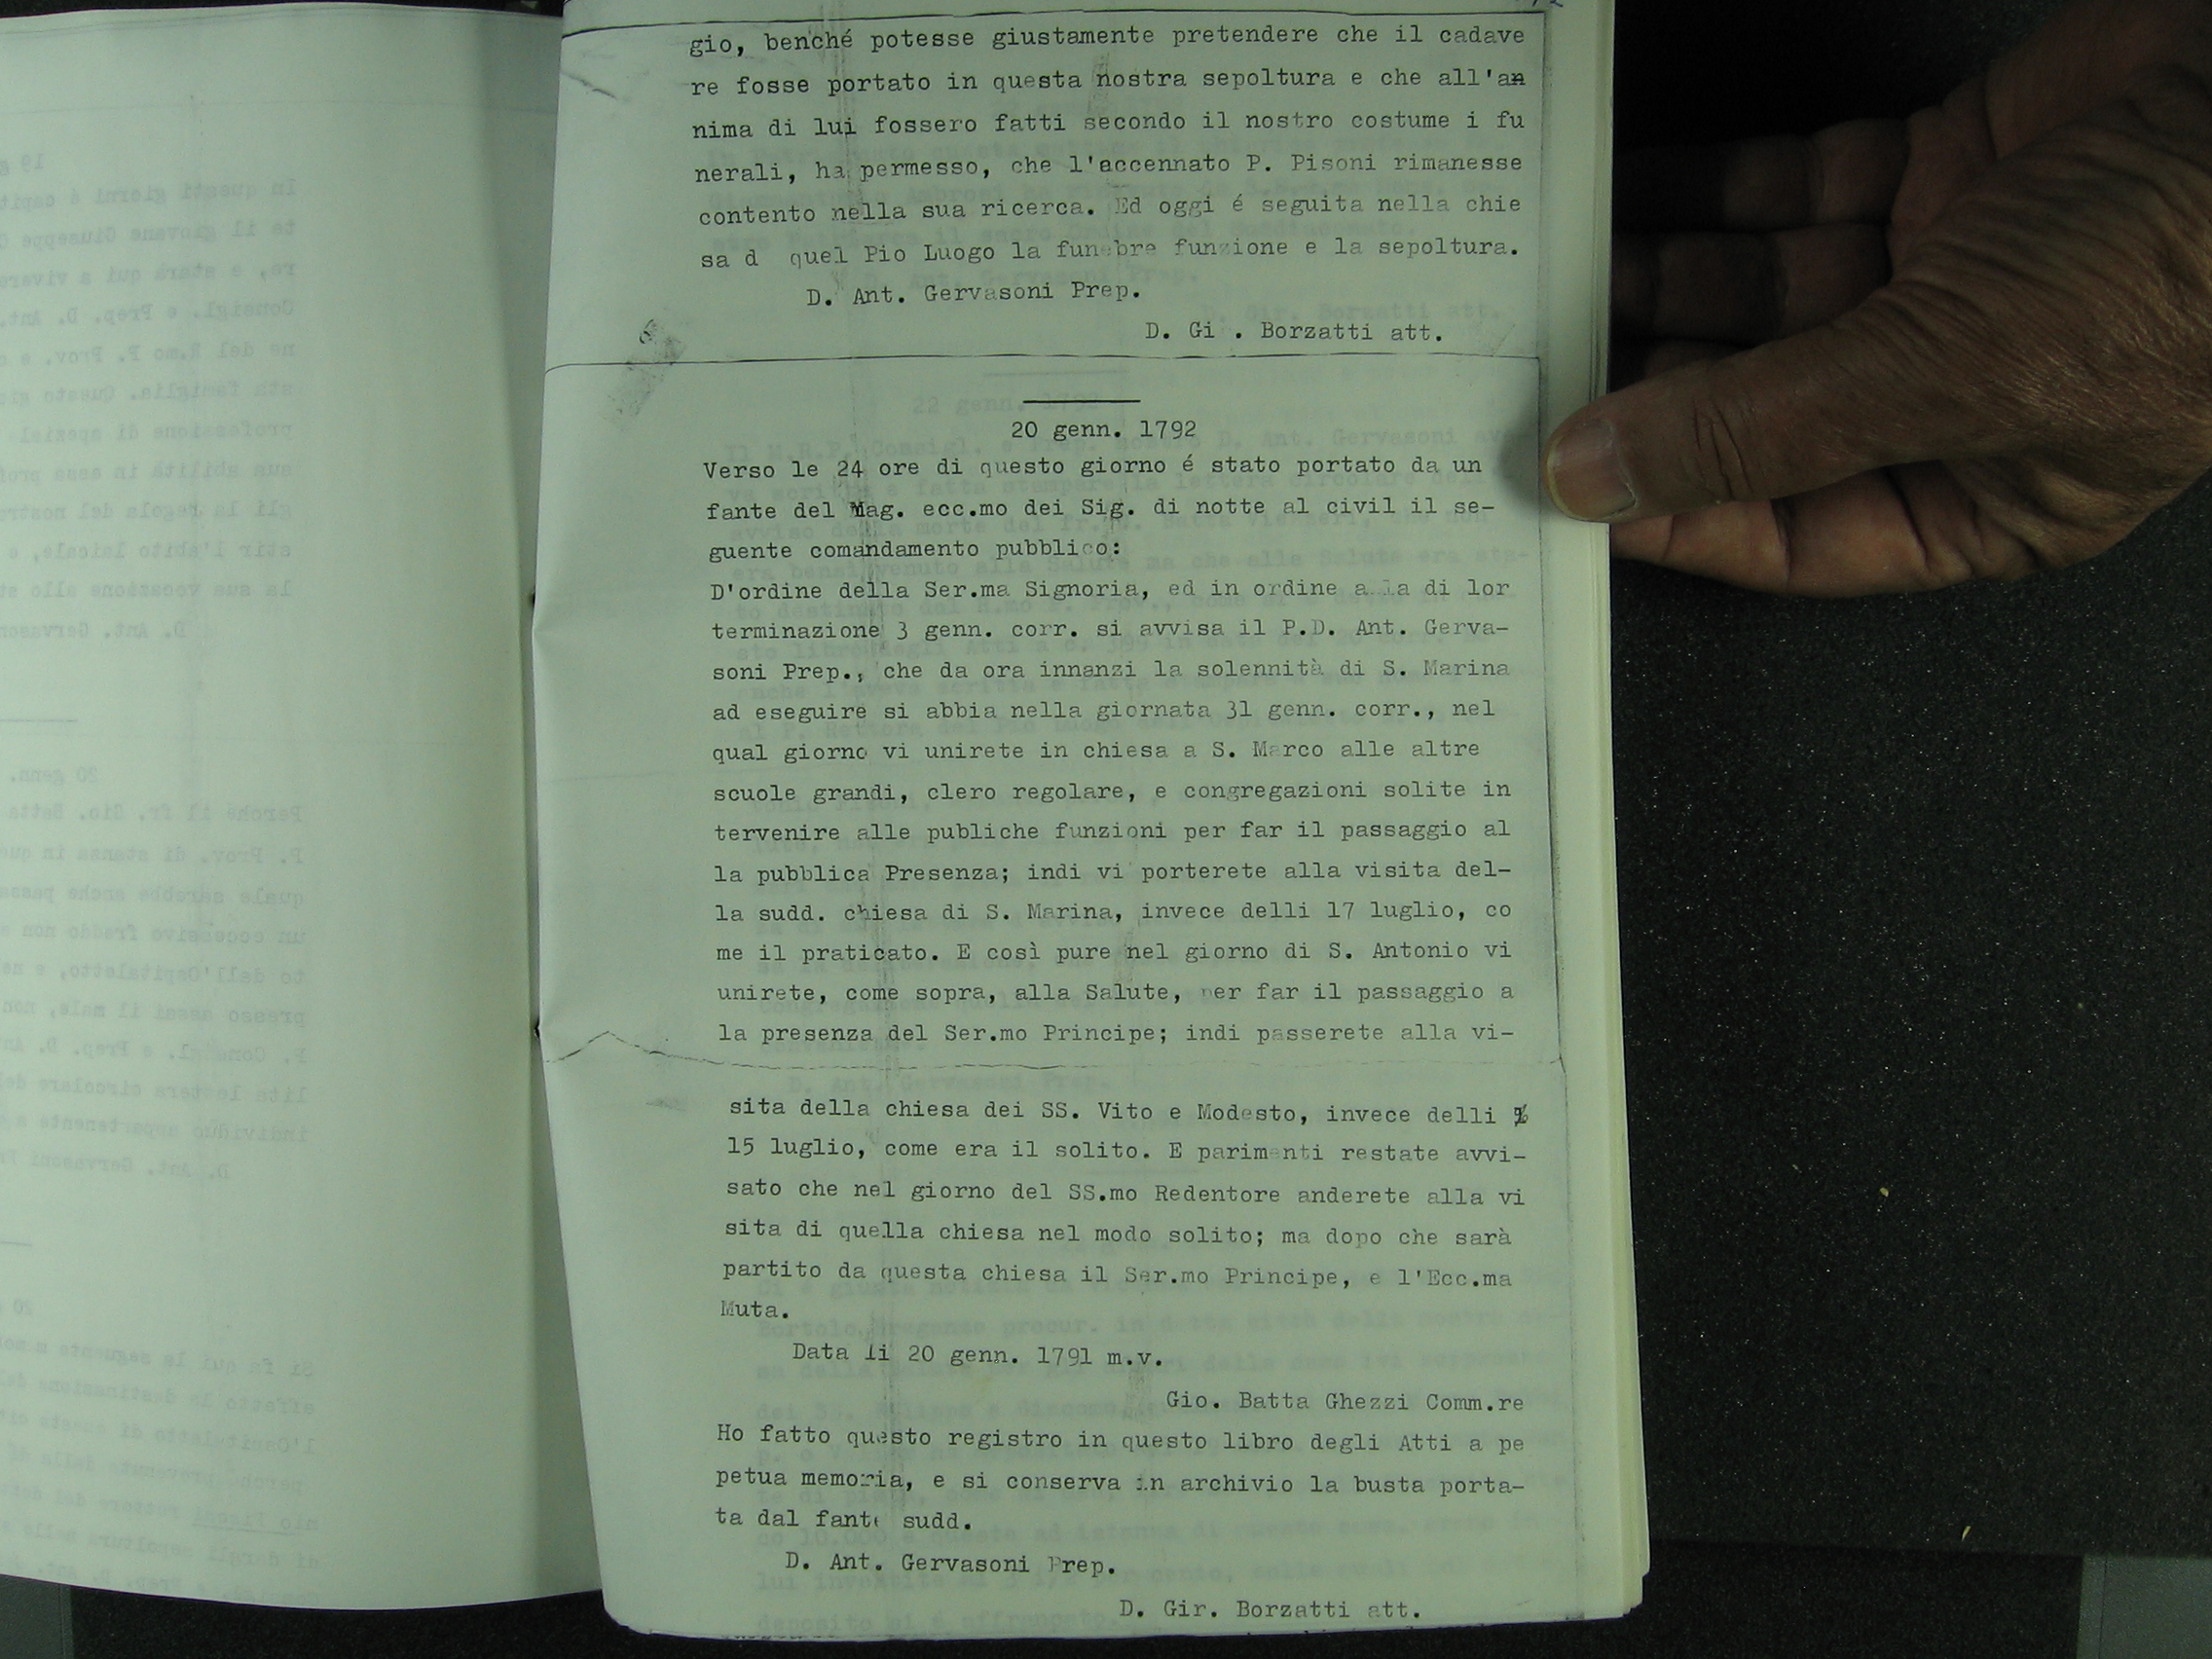 gio, benché potesse giustamente pretendere che il cadave
re fosse portato in questa nostra sepoltura e che all'an
nima di lui fossero fatti secondo il nostro costume i fu
nerali, ha permesso, che l'accennato P. Pisoni rimanesse
contento nella sua ricerca. Ed oggi é seguita nella chie
sa d quel Pio Luogo la funebre funzione e la sepoltura.
D. Ant. Gervasoni Prep.
D. Gi . Borzatti att.
20 genn. 1792
Verso le 24 ore di questo giorno é stato portato da un
fante del Mag. ecc.mo dei Sig. di notte al civil il se-
guente comandamento pubblico:
D'ordine della Ser.ma Signoria, ed in ordine alla di lor
terminazione 3 genn. corr. si avvisa il P.D. Ant. Gerva-
soni Prep., che da ora innanzi la solennità di S. Marina
ad eseguire si abbia nella giornata 31 genn. corr., nel
qual giorno vi unirete in chiesa a S. Marco alle altre
scuole grandi, clero regolare, e congregazioni solite in
tervenire alle publiche funzioni per far il passaggio al
la pubblica Presenza; indi vi porterete alla visita del-
la sudd. chiesa di S. Marina, invece delli 17 luglio, co
me il praticato. E così pure nel giorno di S. Antonio vi
unirete, come sopra, alla Salute, per far il passaggio a
la presenza del Ser.mo Principe; indi passerete alla vi-
sita della chiesa dei SS. Vito e Modesto, invece delli
15 luglio, come era il solito. E parimenti restate avvi-
sato che nel giorno del SS.mo Redentore anderete alla vi
sita di quella chiesa nel modo solito; ma dopo che sarà
partito da questa chiesa il Ser.mo Principe, e l'Ecc.ma
Muta.
Data li 20 genn. 1791 m.v.
Gio. Batta Ghezzi Comm.re
Ho fatto questo registro in questo libro degli Atti a pe
petua memoria, e si conserva in archivio la busta porta-
ta dal fante sudd.
D. Ant. Gervasoni Prep.
D. Gir. Borzatti att.